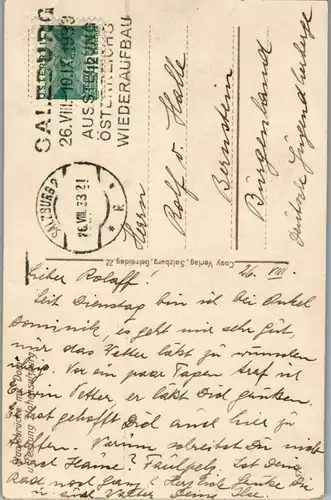 SALZBURG
26.VIII.-10.IX.1933
AUSSTELLUNG
ÖSTERREICHS
WIEDERAUFBAU
SALZBURG 2
26.VIII.33 21
Herrn
Rolf v. Halle
Bernstein
Burgenland
Deutsche Jugendherberge
Cosy Verlag, Salzburg, Getreideg. 22
26. VIII
Lieber Rolaff!
Seit Dienstag bin ich bei Onkel
Dominik, es geht mir sehr gut,
nur das Wetter läßt zu wünschen
übrig. Vor ein paar Tagen traf ich
Vetter, er läßt Dich grüßen.
hat gehofft Dich auch hier zu
treffen. Warum schreibst Du
Faulpelz. Ist Dein
Rad noch ganz? Herzliche Grüße Dir
u. Vetter Deine